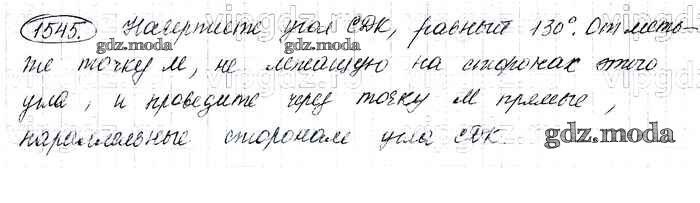 1545. Начертите угол СДК, равный 130°. Отметь-
те точку М, не лежащую на сторонах этого
угла, и проведите через точку М прямые,
параллельные сторонам угла СДК.
gdz.moda
gdz.moda
gdz.moda